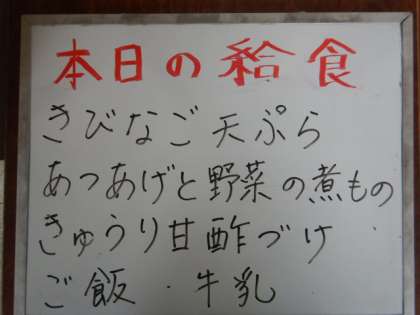 本日の給食
きびなご天ぷら
あつあげと野菜の煮もの
きゅうり甘酢づけ
ご飯・牛乳